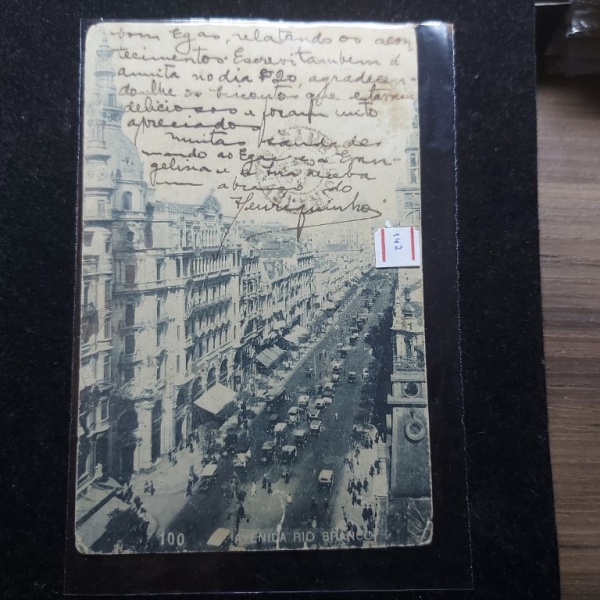 com Egas, relatando os acon-
tecimentos. Escrevi tambem á
amita no dia 20, agradecen-
do-lhe os biscoutos que estavam
deliciosos e foram muito
apreciados.
Muitas saudades
mando ao Egas e a Evan-
gelina e a Sra receba
um abraço do
Henriquinho
142
100 AVENIDA RIO BRANCO